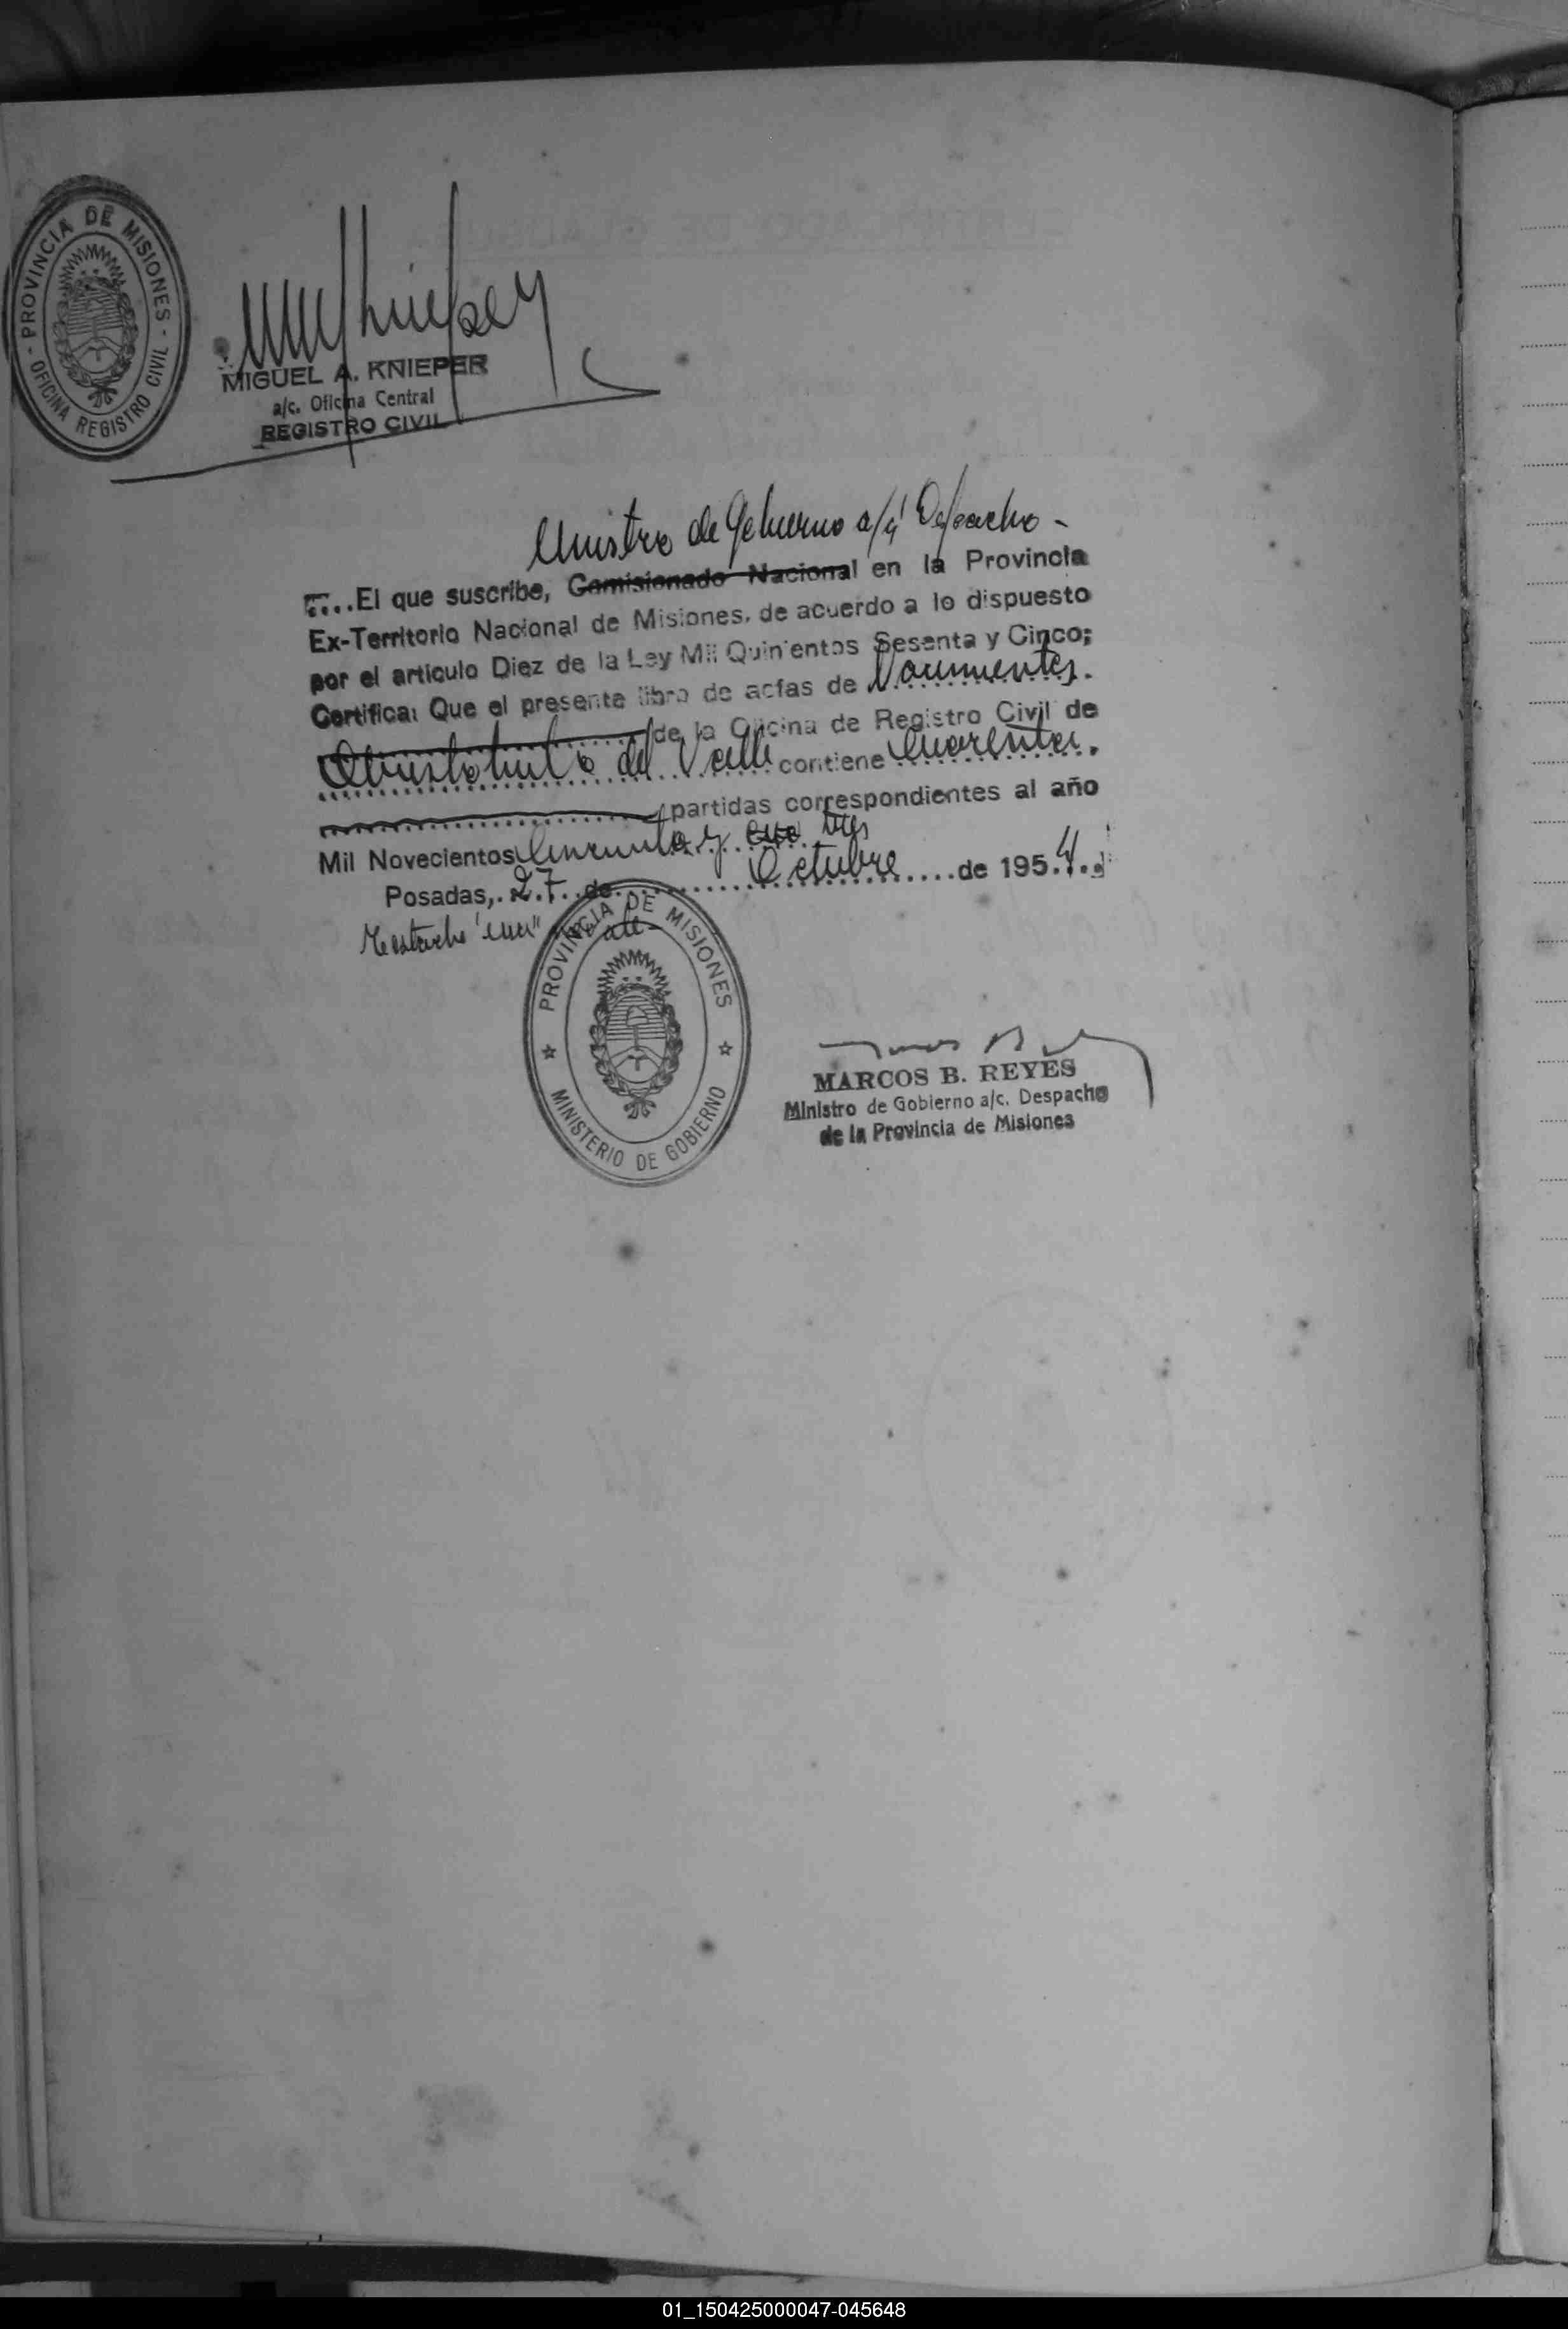 PROVINCIA DE MISIONES
- OFICINA REGISTRO CIVIL -
MIGUEL A. KNIEPER
a/c. Oficina Central
REGISTRO CIVIL
Ministro de Gobierno a/c Despacho -
....El que suscribe, Comisionado Nacional en la Provincia
Ex-Territorio Nacional de Misiones, de acuerdo a lo dispuesto
por el artículo Diez de la Ley Mil Quinientos Sesenta y Cinco;
Certifica: Que el presente libro de actas de Nacimientos.
de la Oficina de Registro Civil de
del Valle contiene Cuarenta.
partidas correspondientes al año
Mil Novecientos Cincuenta y tres
Posadas, 27 de Octubre de 1954.
Testado
PROVINCIA DE MISIONES
MINISTERIO DE GOBIERNO
MARCOS B. REYES
Ministro de Gobierno a/c. Despacho
de la Provincia de Misiones
01_150425000047-045648